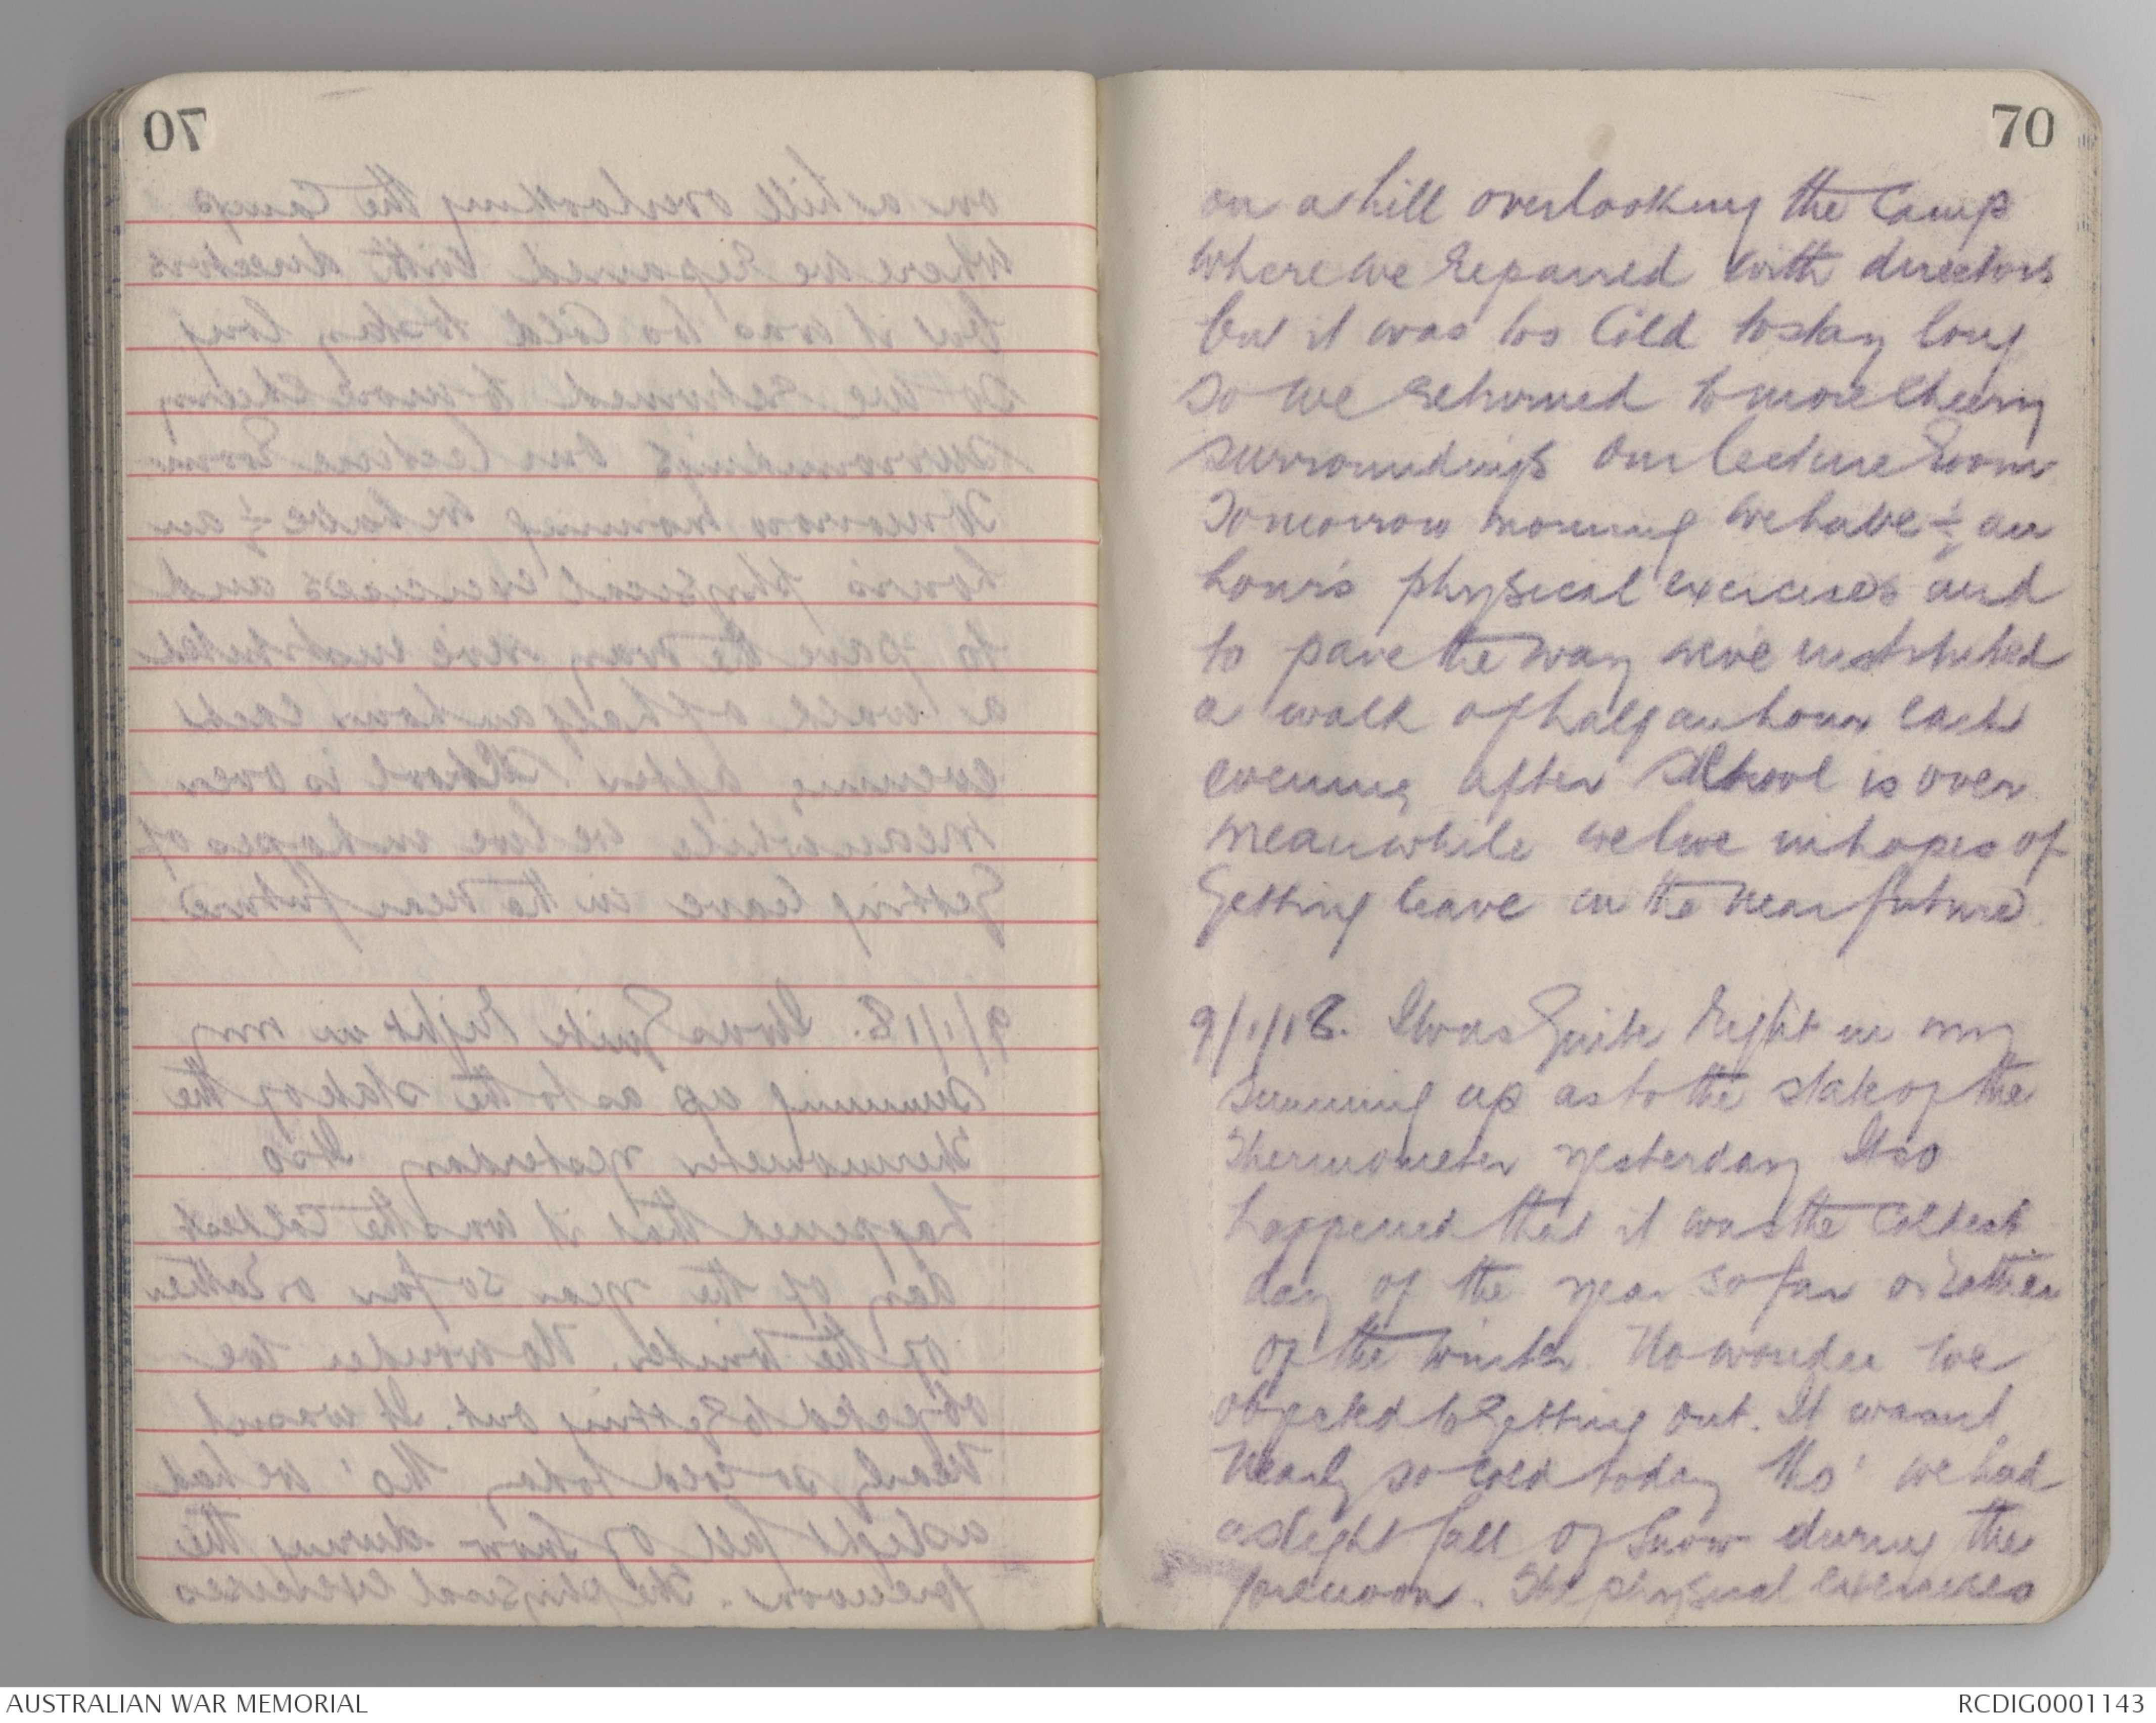 70
on a hill overlooking the Camp
where we repaired with directors
but it was too Cold to stay long
so we returned to more cheery
surroundings our lecture room
Tomorrow morning we have ½ an
hour's physical exercises and
to pave the way we've instituted
a walk of half an hour each
evening after School is over
meanwhile we live in hopes of
Getting leave in the near future.
9/1/18. I was Quite Right in my
summing up as to the state of the
Thermometer yesterday It so
happened that it was the coldest
day of the year so far or rather
of the winter. No wonder we
objected to Getting out. It wasnt
Nearly so cold today tho' we had
a slight fall of Snow during the
forenoon. The physical exercises
AUSTRALIAN WAR MEMORIAL
RCDIG0001143